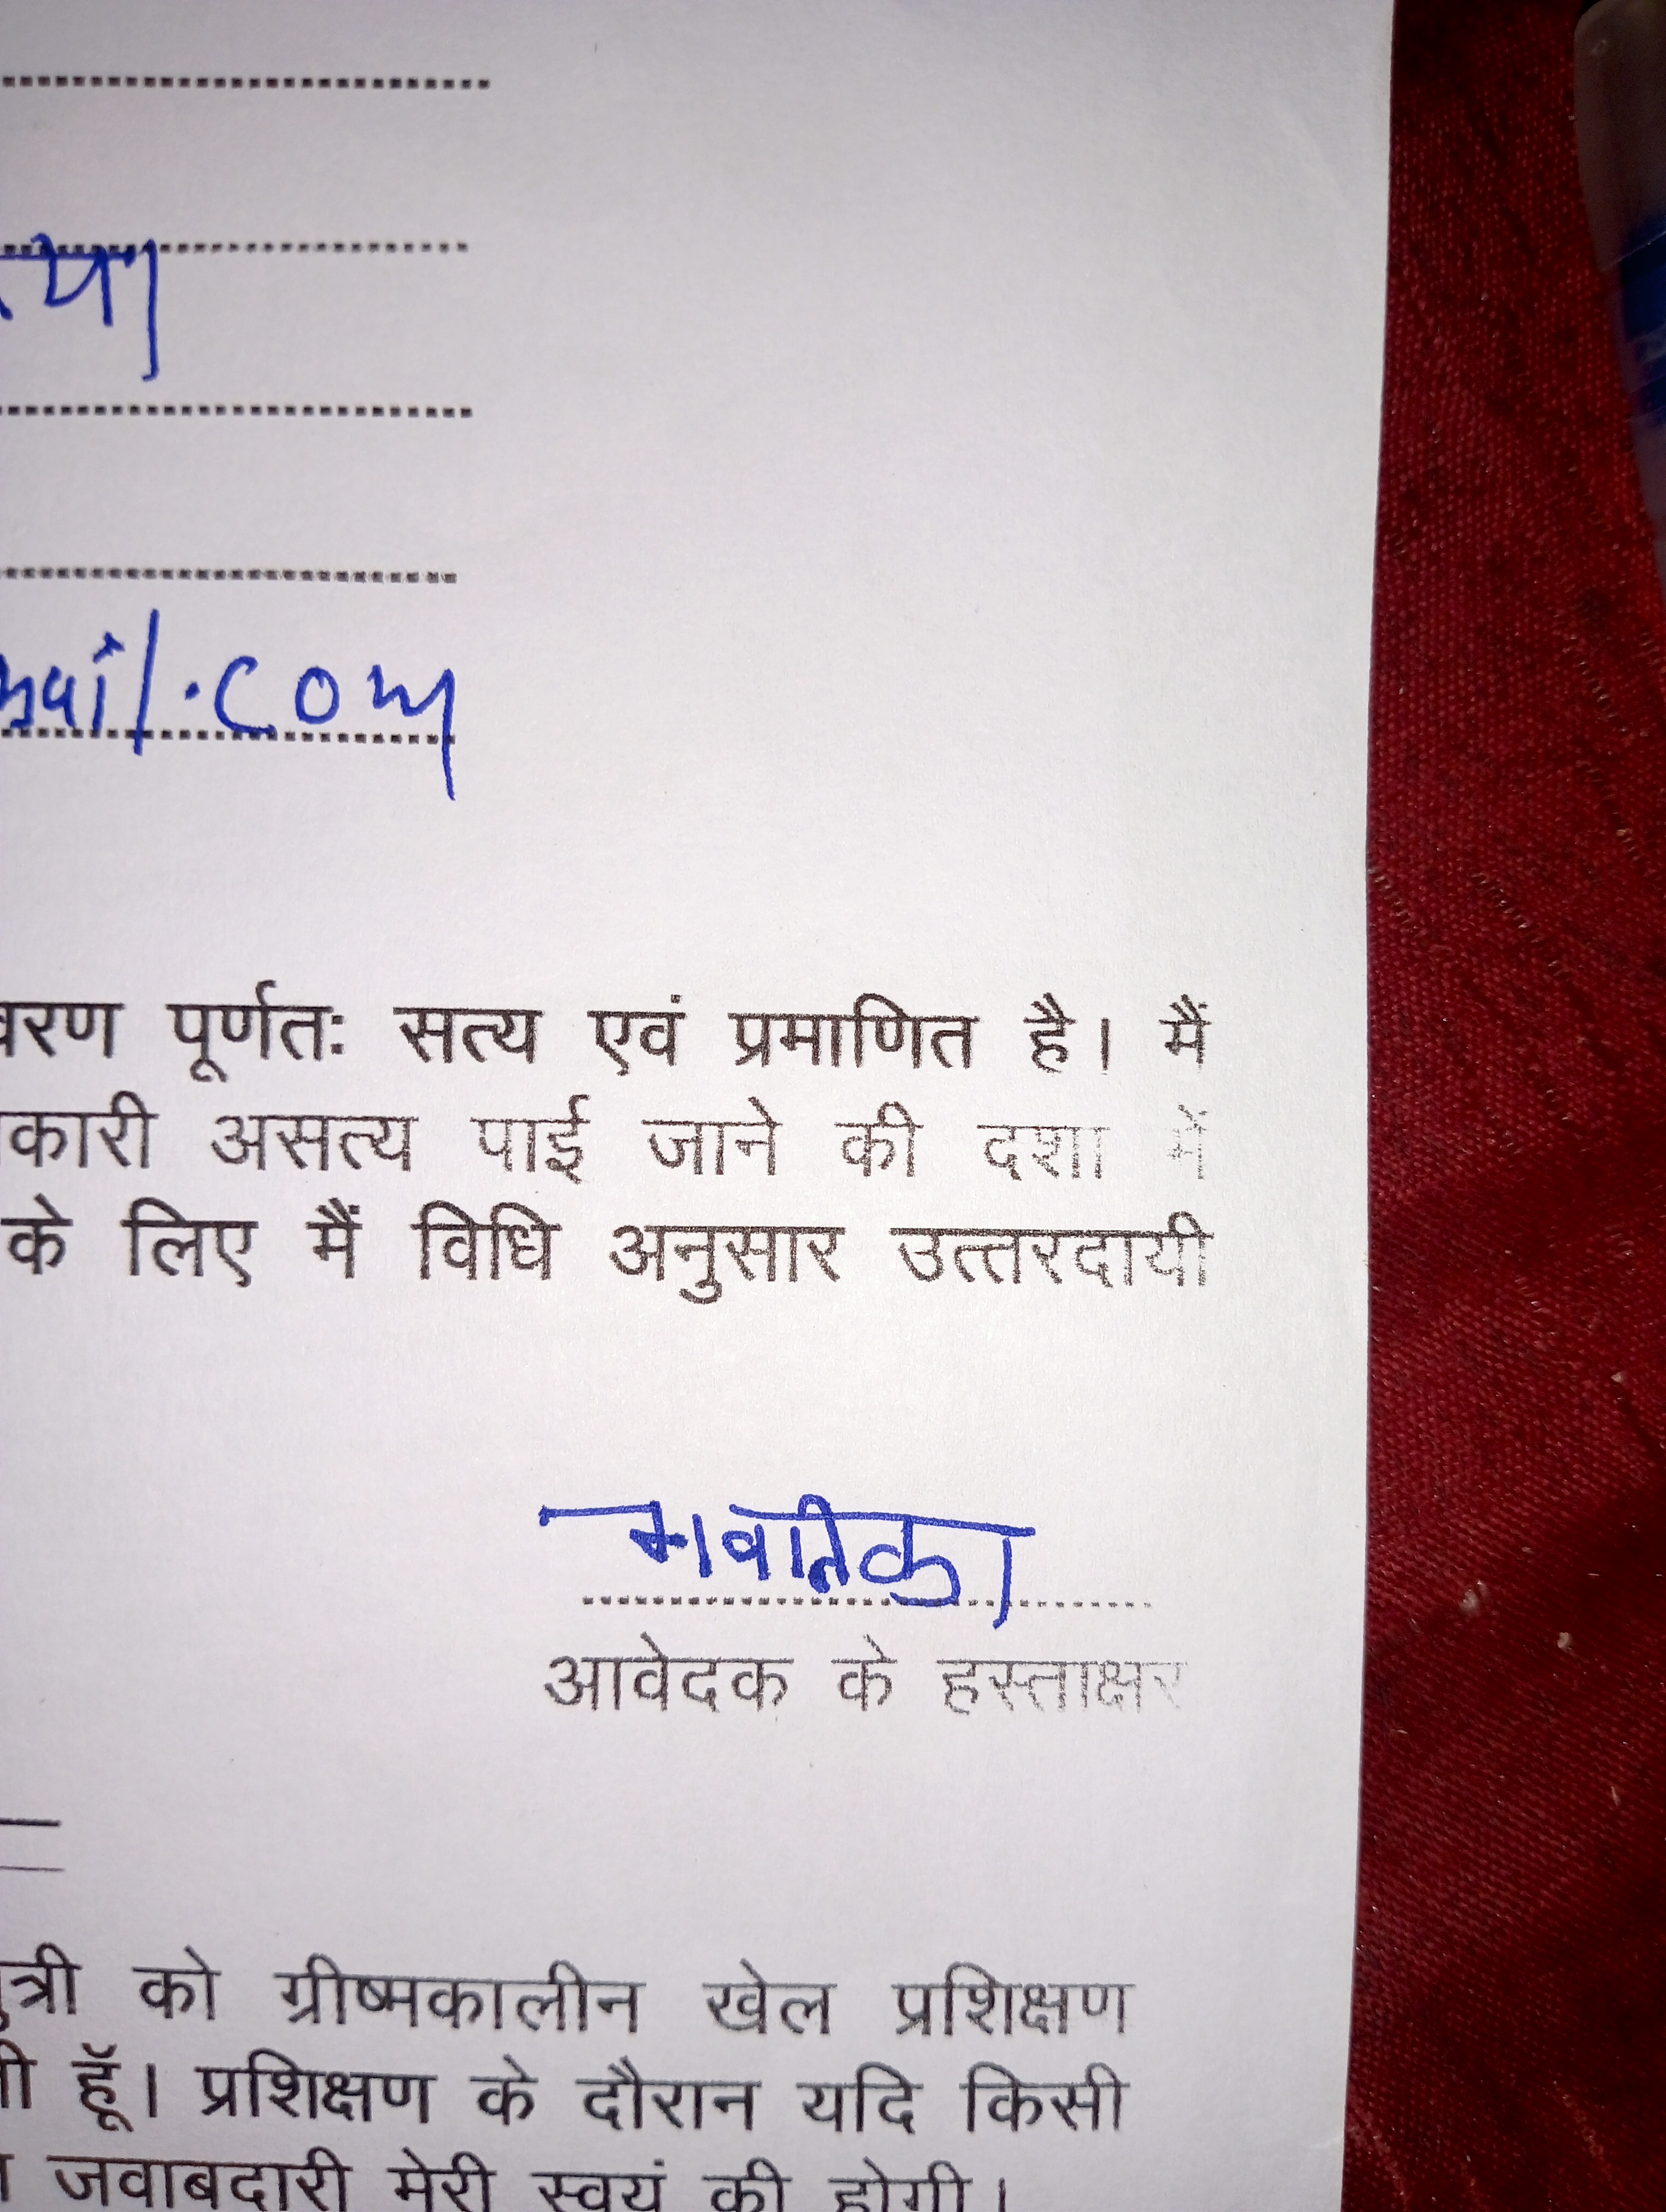 त्या
mail.com
वरण पूर्णतः सत्य एवं प्रमाणित है। मैं
कारी असत्य पाई जाने की दशा में
के लिए मैं विधि अनुसार उत्तरदायी
आवेदक के हस्ताक्षर
पुत्री को ग्रीष्मकालीन खेल प्रशिक्षण
हूॅं। प्रशिक्षण के दौरान यदि किसी
जवाबदारी मेरी स्वयं की होगी।